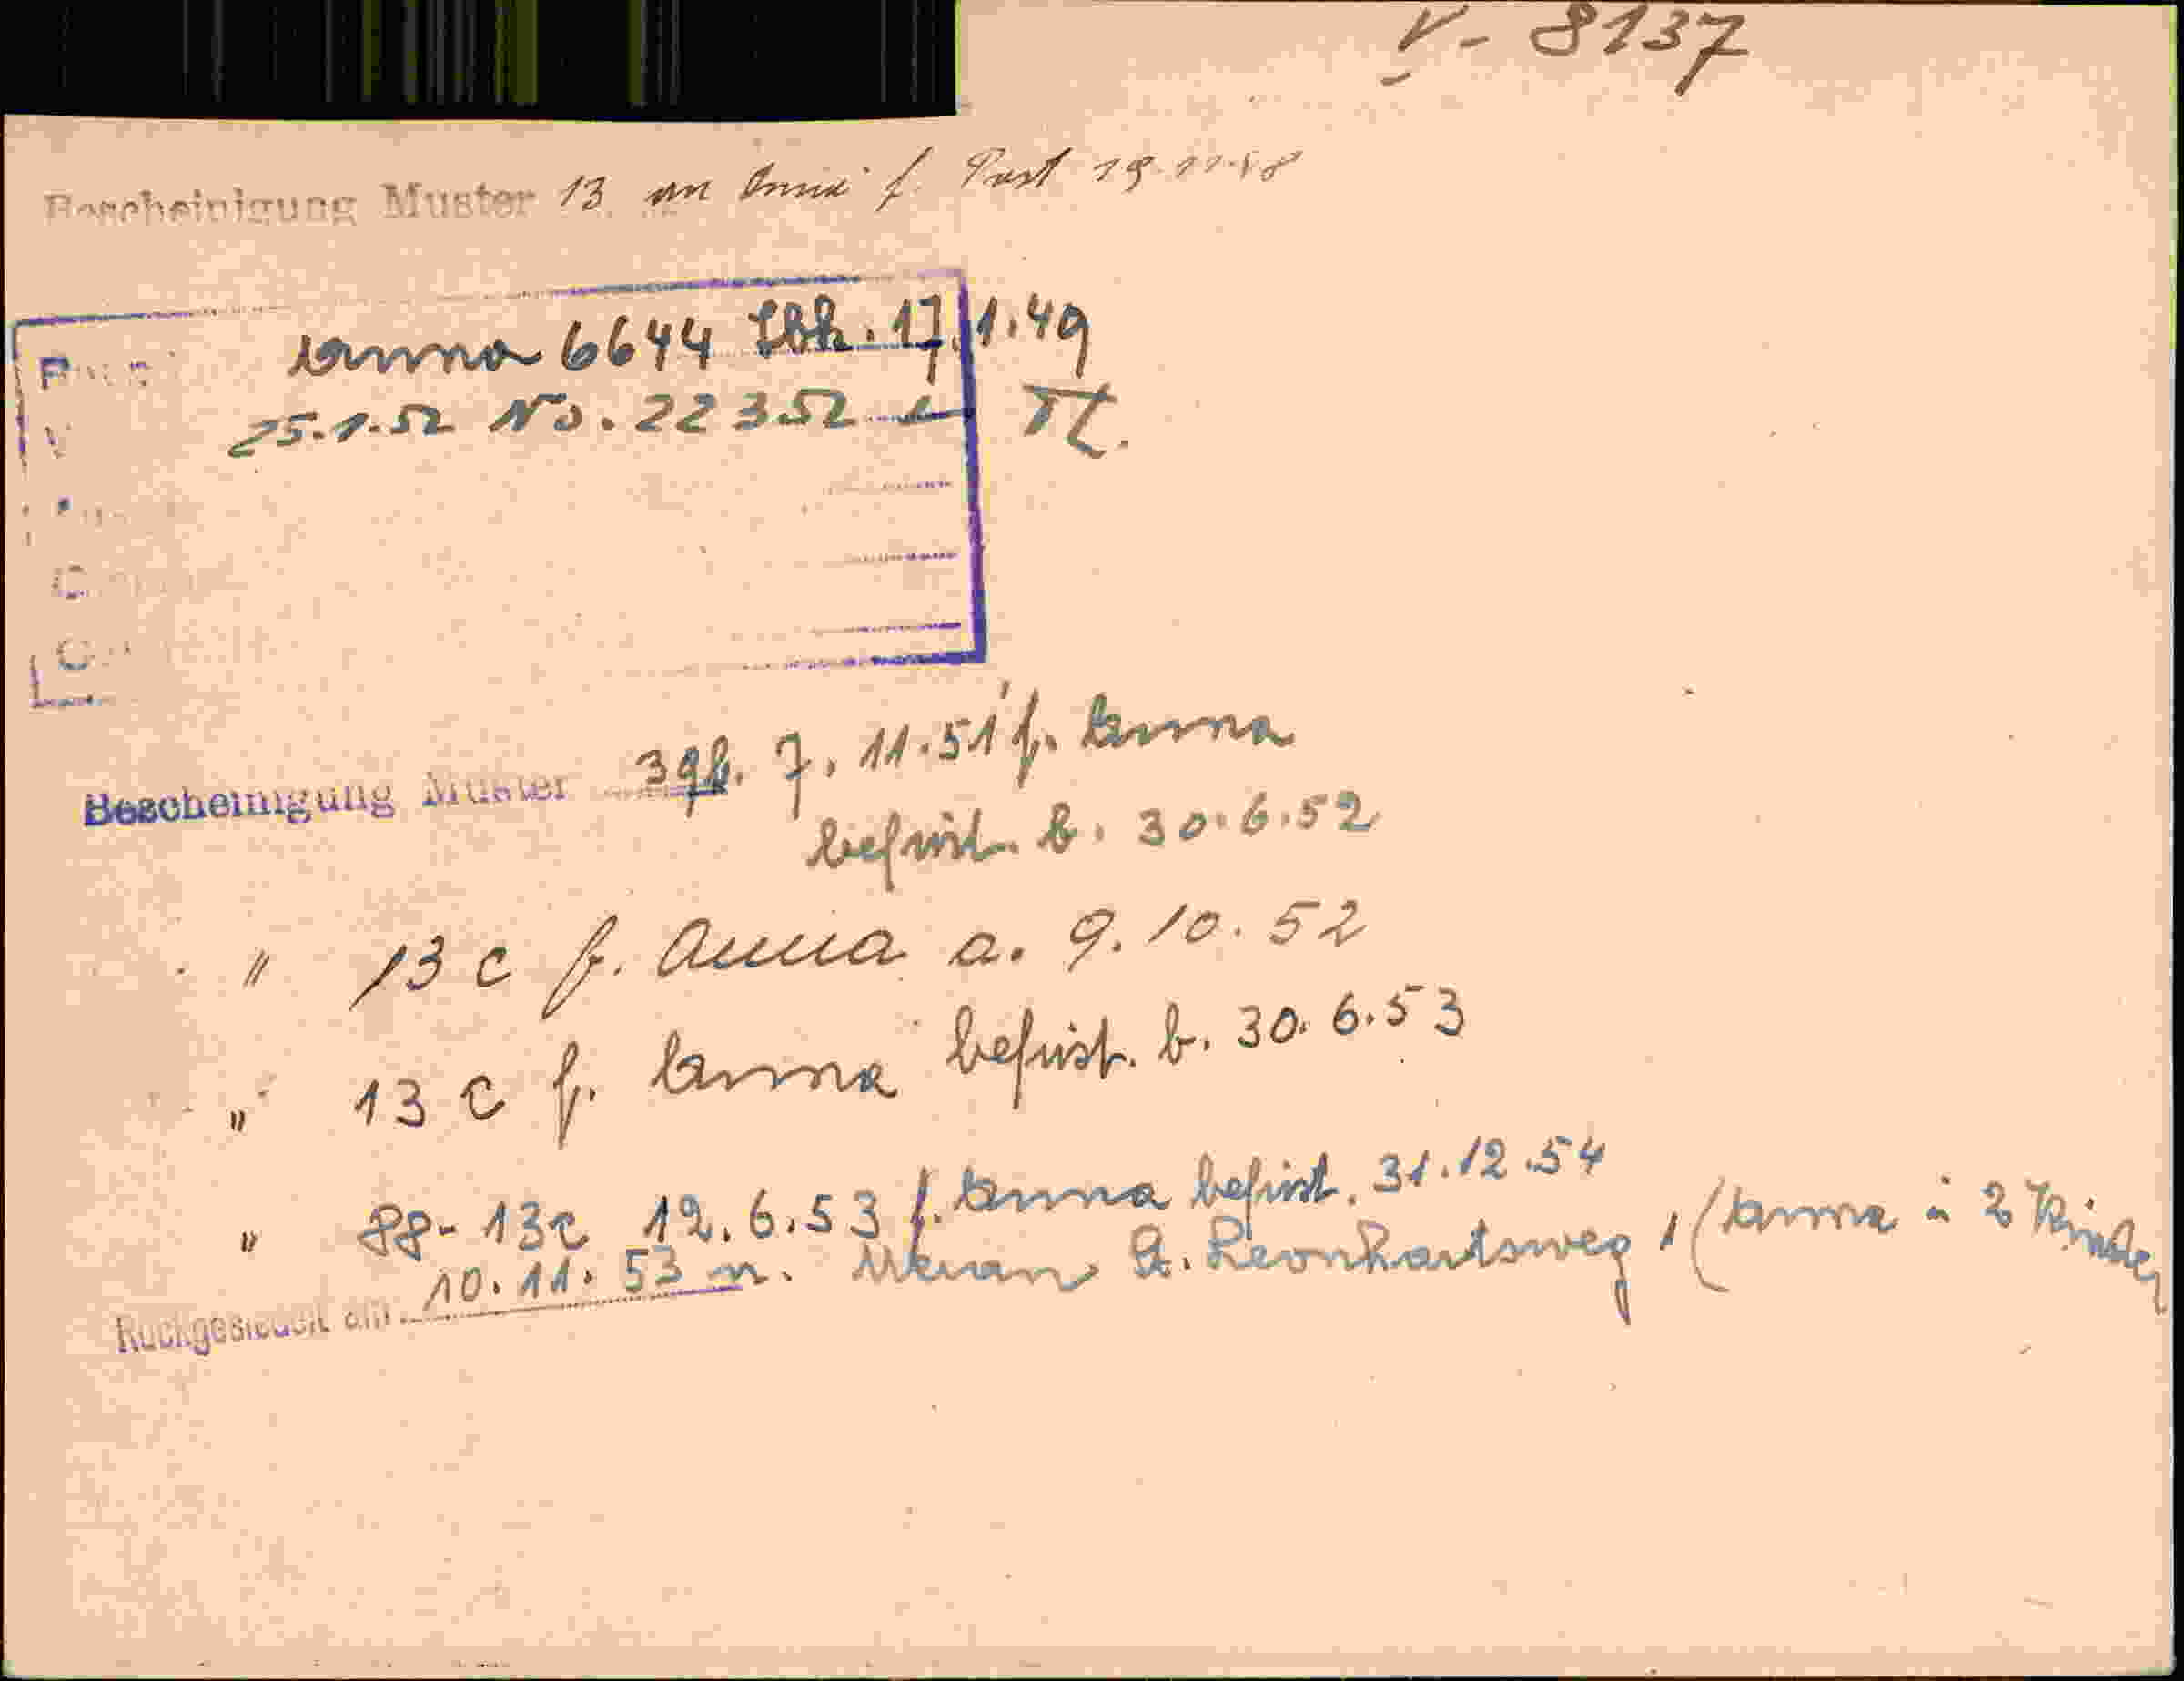 V- 8137
Bescheinigung Muster 13 an Anna f. Post 19.11.48
Anna 6644 Sbh. 17.1.49
25.1.52 No. 22352
Bescheinigung Muster 39b. 7.11.51 f. Anna
befrist. b. 30.6.52
" 13 c f. Anna a. 9.10.52
" 13 c f. Anna befrist. b. 30.6.53
" 88- 13c 12.6.53 f. Anna befrist. 31.12.54
Rückgesiedelt am 10.11.53 n. Meran A. Leonhartsweg 1 (Anna u 2 Kinder